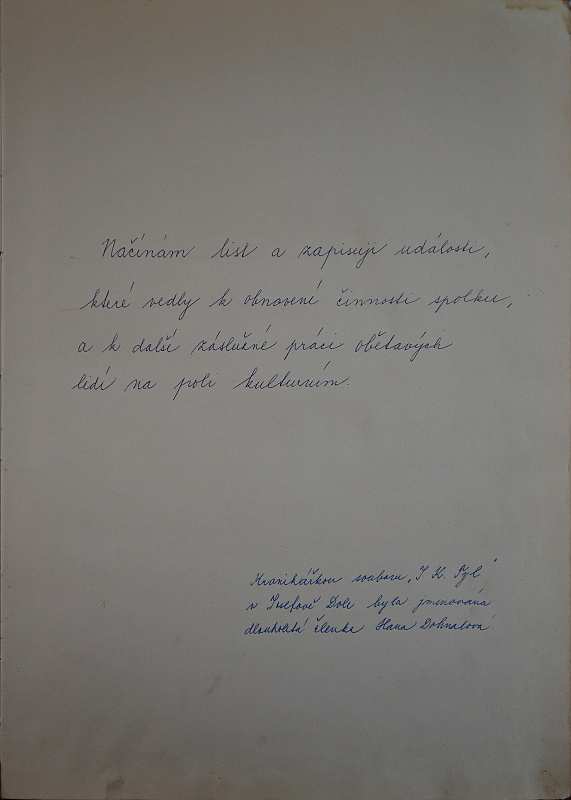 Načínám list a zapisuji události,
které vedly k obnovení činnosti spolku,
a k další záslužné práci obětavých
lidí na poli kulturním.
Kronikářkou souboru „J. K. Tyl"
v Josefově Dole byla jmenována
dlouholetá členka Hana Dohnalová.